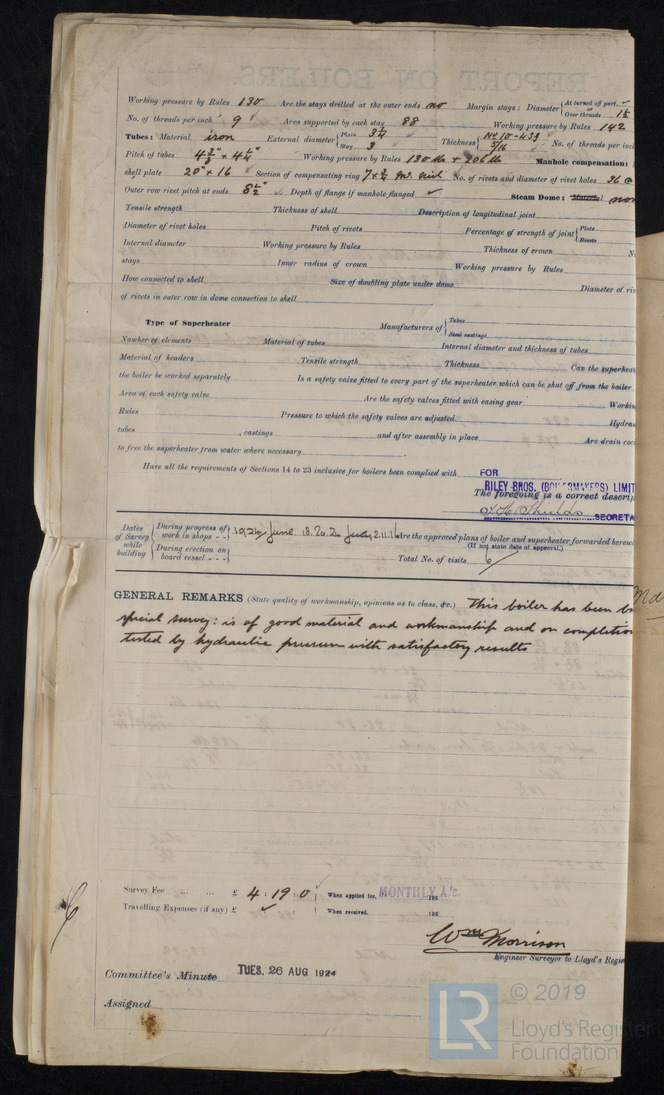 REPORT ON BOILERS.
Working pressure by Rules 130 Are the stays drilled at the outer ends no Margin stays: Diameter { At turned off part, or Over threads
No. of threads per inch 9 Area supported by each stay 88 Working pressure by Rules 142
Tubes: Material iron External diameter { Plain 3¼ Stay 3 Thickness { 5/16 No. of threads per inch
Pitch of tubes 4⅜" × 4¼" Working pressure by Rules 130 lbs + 206 lbs Manhole compensation:
shell plate 20" × 16 Section of compensating ring 7 × ¾ No. of rivets and diameter of rivet holes 36
Outer row rivet pitch at ends Depth of flange if manhole flanged ✓ Steam Dome: Material
Tensile strength Thickness of shell Description of longitudinal joint
Diameter of rivet holes Pitch of rivets Percentage of strength of joint { Plate Rivets
Internal diameter Working pressure by Rules Thickness of crown
stays Inner radius of crown Working pressure by Rules
How connected to shell Size of doubling plate under dome Diameter of
of rivets in outer row in dome connection to shell
Type of Superheater Manufacturers of { Tubes Steel castings
Number of elements Material of tubes Internal diameter and thickness of tubes
Material of headers Tensile strength Thickness Can the
the boiler be worked separately Is a safety valve fitted to every part of the superheater which can be shut off from the boiler
Area of each safety valve Are the safety valves fitted with easing gear
Rules Pressure to which the safety valves are adjusted
tubes , castings and after assembly in place Are drain
to free the superheater from water where necessary
Have all the requirements of Sections 14 to 23 inclusive for boilers been complied with
FOR
RILEY BROS. (BOILERMAKERS) LIMIT
The foregoing is a correct
Shields SECRETA
Dates of Survey while building { During progress of work in shops - - 1924 June 18. 26. July 2. 11. 16 Are the approved plans of boiler and superheater forwarded
(If not state date of approval.)
During erection on board vessel - - - Total No. of visits 6
GENERAL REMARKS (State quality of workmanship, opinions as to class, &c.) This boiler has been
special survey: is of good material and workmanship and on completion
tested by hydraulic pressure with satisfactory results
Survey Fee ... ... £ 4 : 19 : 0 When applied for, MONTHLY A/c. 192
Travelling Expenses (if any) £ ✓ : : When received, 192
Wm Morrison
Engineer Surveyor to Lloyd's
Committee's Minute TUES. 26 AUG 1924
Assigned
LR © 2019
Lloyd's Register
Foundation